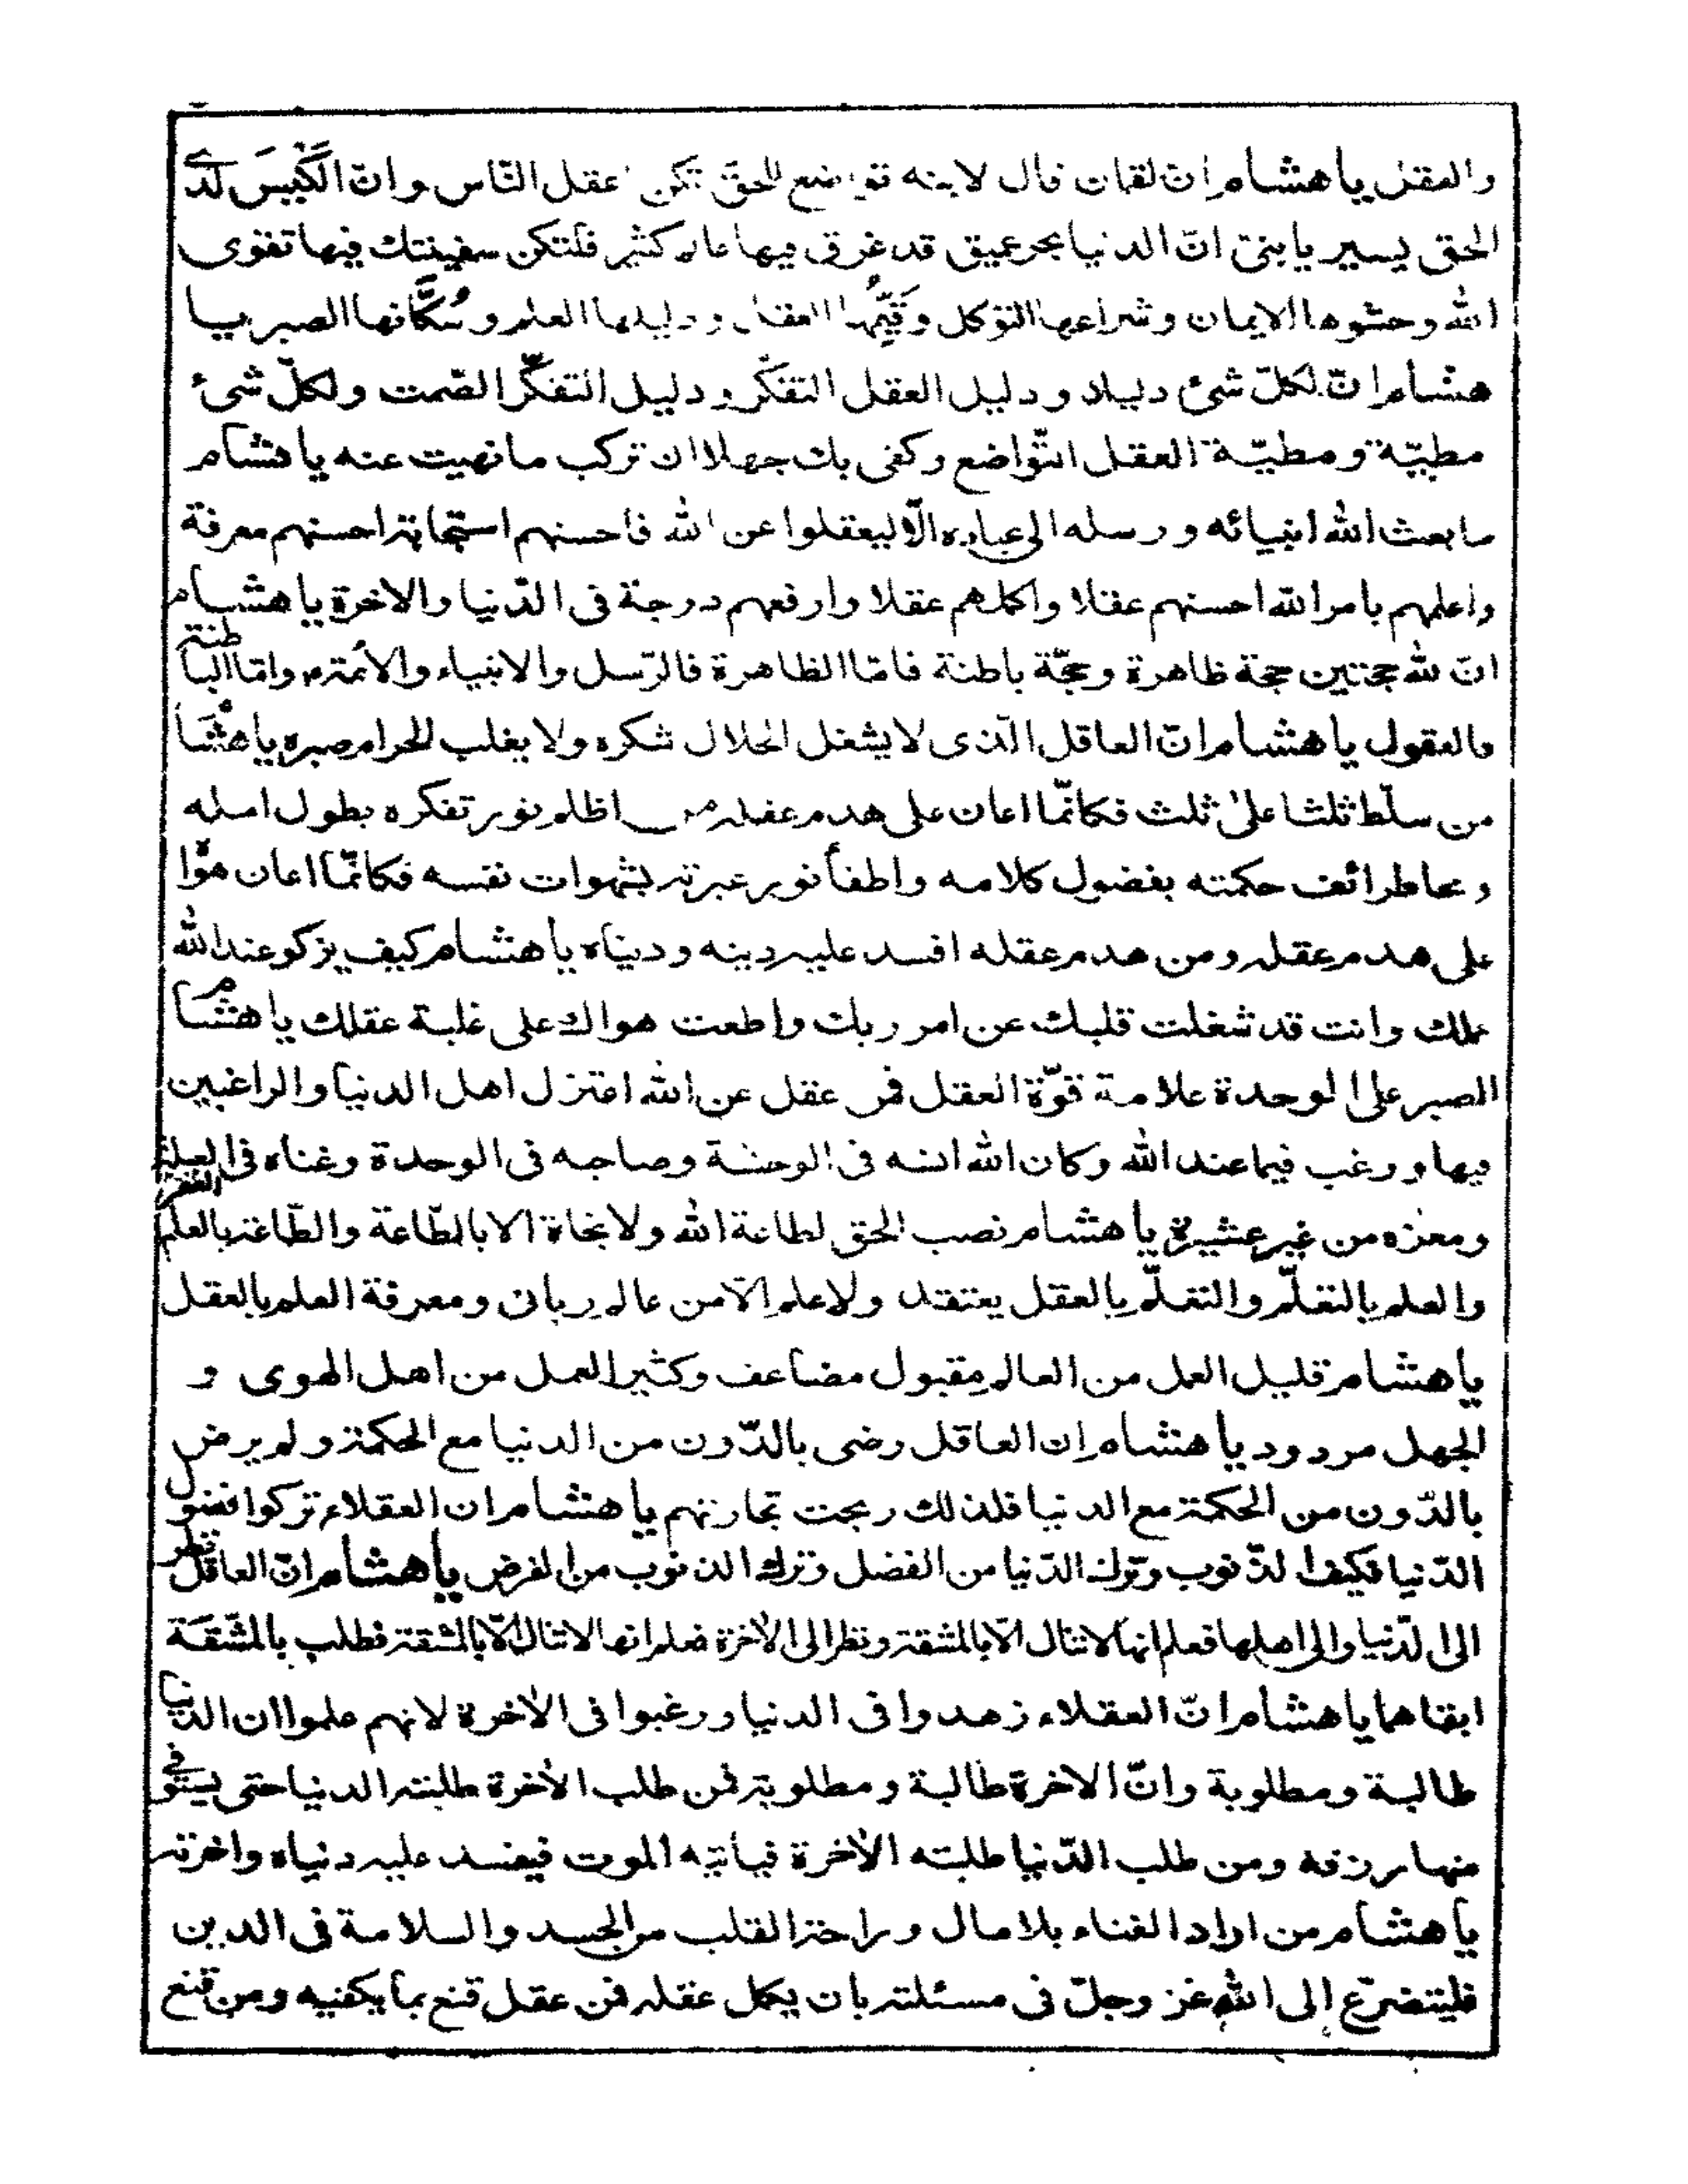 والعقل يا هشام ان لقمان قال لابنه تواضع للحق تكن اعقل النّاس و انّ الكَيِّسَ لدى
الحق يسير يا بنىّ انّ الدنيا بحر عميق قد غرق فيها عالم كثير فلتكن سفينتك فيها تقوى
الله وحشوها الايمان وشراعها التوكل وقَيِّمُها العقل ودليلها العلم وسُكَّانها الصبر يا
هشام انّ لكلّ شئ دليلا و دليل العقل التفكّر و دليل التفكّر الصّمت ولكلّ شئ
مطيّة ومطيّة العقل التّواضع وكفى بك جهلا ان تركب ما نهيت عنه يا هشام
ما بعث الله انبيائه و رسله الى عباده الّا ليعقلوا عن الله فاحسنهم استجابة احسنهم معرفة
واعلمهم بامر الله احسنهم عقلا واكملهم عقلا وارفعهم درجة فى الدّنيا والاخرة يا هشام
انّ لله حجتين حجة ظاهرة وحجّة باطنة فامّا الظاهرة فالرّسل والانبياء والأئمة م وامّا الباطنة
فالعقول يا هشام انّ العاقل الّذى لا يشغل الحلال شكره ولا يغلب الحرام صبره يا هشام
من سلّط ثلثا على ثلث فكانّما اعان على هدم عقله من اظلم نور تفكره بطول امله
ومحا طرائف حكمته بفضول كلامه واطفأ نور عبرته بشهوات نفسه فكانّما اعان هواه
على هدم عقله ومن هدم عقله افسد عليه دينه ودنياه يا هشام كيف يزكو عند الله
عملك وانت قد شغلت قلبك عن امر ربك واطعت هواك على غلبة عقلك يا هشام
الصبر على الوحدة علامة قوّة العقل فمن عقل عن الله اعتزل اهل الدنيا والراغبين
فيها ورغب فيما عند الله وكان الله انسه فى الوحشة وصاحبه فى الوحدة وغناه فى العيلة
ومعزه من غير عشيرة يا هشام نصب الحق لطاعة الله ولا نجاة الا بالطّاعة والطّاعة بالعلم
والعلم بالتعلّم والتعلّم بالعقل يعتقد ولا علم الّا من عالم ربانى ومعرفة العلم بالعقل
يا هشام قليل العمل من العالم مقبول مضاعف وكثير العمل من اهل الهوى و
الجهل مردود يا هشام ان العاقل رضى بالدّون من الدنيا مع الحكمة ولم يرض
بالدّون من الحكمة مع الدنيا فلذلك ربحت تجارتهم يا هشام ان العقلاء تركوا فضول
الدّنيا فكيف الذّنوب وترك الدّنيا من الفضل وترك الذنوب من الفرض يا هشام انّ العاقل نظر
الى الدّنيا والى اهلها فعلم انها لا تنال الّا بالمشقة ونظر الى الأخرة فعلم انها لا تنال الّا بالمشقة فطلب بالمشّقة
ابقاهما يا هشام انّ العقلاء زهدوا فى الدنيا ورغبوا فى الأخرة لانهم علموا ان الدنيا
طالبة ومطلوبة وانّ الاخرة طالبة ومطلوبة فمن طلب الأخرة طلبته الدنيا حتى يستوفى
منها رزقه ومن طلب الدّنيا طلبته الأخرة فياتيه الموت فيفسد عليه دنياه واخرته
يا هشام من اراد الغناء بلا مال وراحة القلب من الجسد والسلامة فى الدين
فليتضرّع الى الله عز وجلّ فى مسئلته بان يكمل عقله فمن عقل قنع بما يكفيه ومن قنع